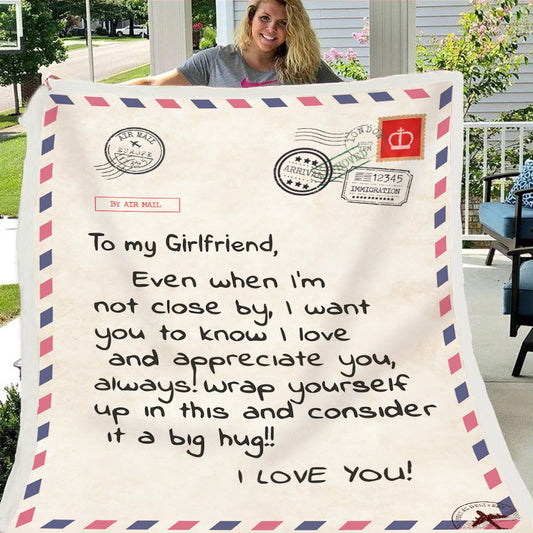 AIR MAIL
EUROPE
LONDON
ARRIVAL
12345
IMMIGRATION
BY AIR MAIL
To my Girlfriend,
Even when i'm
not close by, I want
you to know I love
and appreciate you,
always! wrap yourself
up in this and consider
it a big hug!!
I LOVE YOU!